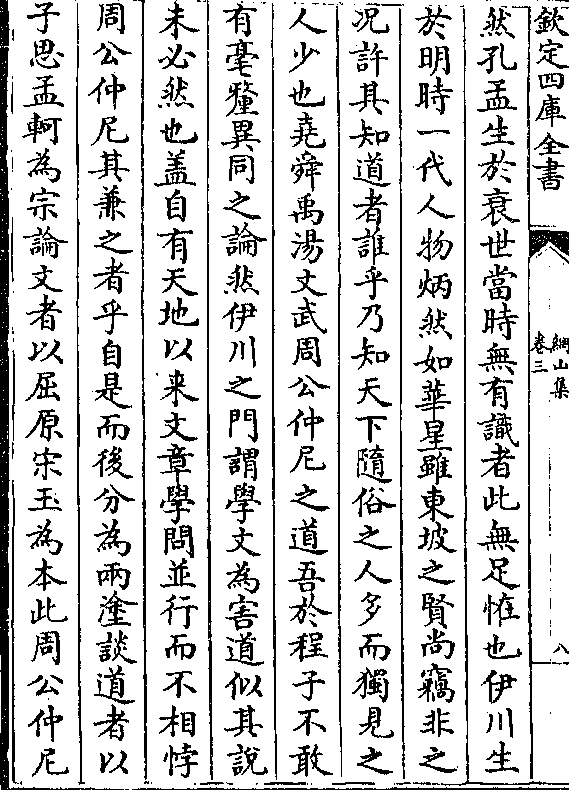 欽定四庫全書
綱山集
卷三
八
然孔孟生於衰世當時無有識者此無足恠也伊川生
於明時一代人物炳然如華星雖東坡之賢尚竊非之
况許其知道者誰乎乃知天下隨俗之人多而獨見之
人少也堯舜禹湯文武周公仲尼之道吾於程子不敢
有毫釐異同之論然伊川之門謂學文為害道似其說
未必然也盖自有天地以来文章學問並行而不相悖
周公仲尼其兼之者乎自是而後分為兩塗談道者以
子思孟軻為宗論文者以屈原宋玉為本此周公仲尼